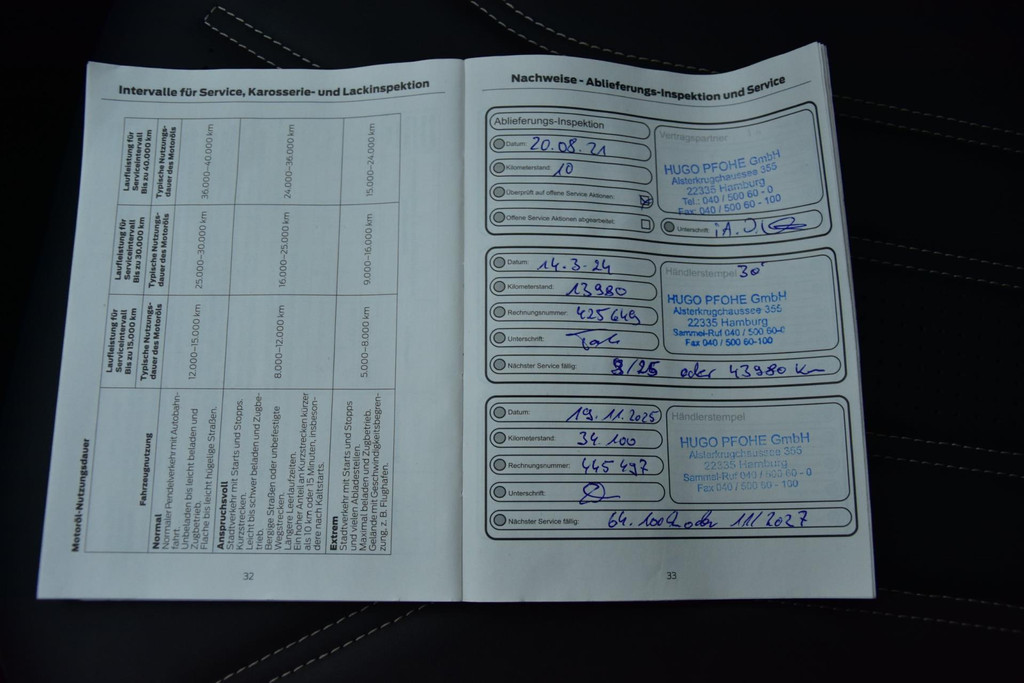 Intervalle für Service, Karosserie- und Lackinspektion
Motoröl-Nutzungsdauer
Fahrzeugnutzung
Laufleistung für
Serviceintervall
Bis zu 15.000 km
Typische Nutzungs-
dauer des Motoröls
Laufleistung für
Serviceintervall
Bis zu 30.000 km
Typische Nutzungs-
dauer des Motoröls
Laufleistung für
Serviceintervall
Bis zu 40.000 km
Typische Nutzungs-
dauer des Motoröls
Normal
Normaler Pendelverkehr mit Autobahn-
fahrt.
Unbeladen bis leicht beladen und
Zugbetrieb.
Flache bis leicht hügelige Straßen.
12.000–15.000 km
25.000–30.000 km
36.000–40.000 km
Anspruchsvoll
Stadtverkehr mit Starts und Stopps.
Kurzstrecken.
Leicht bis schwer beladen und Zugbe-
trieb.
Bergige Straßen oder unbefestigte
Wegstrecken.
Längere Leerlaufzeiten.
Ein hoher Anteil an Kurzstrecken kürzer
als 10 km oder 15 Minuten, insbeson-
dere nach Kaltstarts.
8.000–12.000 km
16.000–25.000 km
24.000–36.000 km
Extrem
Stadtverkehr mit Starts und Stopps
und vielen Abladestellen.
Maximal beladen und Zugbetrieb.
Gelände mit Geschwindigkeitsbegren-
zung, z. B. Flughafen.
5.000–8.000 km
9.000–16.000 km
15.000–24.000 km
32
Nachweise - Ablieferungs-Inspektion und Service
Ablieferungs-Inspektion
Datum: 20.08.21
Kilometerstand: 10
Überprüft auf offene Service Aktionen:
Offene Service Aktionen abgearbeitet:
Vertragspartner
HUGO PFOHE GmbH
Alsterkrugchaussee 355
22335 Hamburg
Tel.: 040 / 500 60 - 0
Fax: 040 / 500 60 - 100
Unterschrift:
Datum: 14.3.24
Kilometerstand: 13980
Rechnungsnummer: 425649
Unterschrift:
Händlerstempel 30'
HUGO PFOHE GmbH
Alsterkrugchaussee 355
22335 Hamburg
Sammel-Ruf 040 / 500 60-0
Fax 040 / 500 60-100
Nächster Service fällig: 9/25 oder 43980 km
Datum: 19.11.2025
Kilometerstand: 34 100
Rechnungsnummer: 445 497
Unterschrift:
Händlerstempel
HUGO PFOHE GmbH
Alsterkrugchaussee 355
22335 Hamburg
Sammel-Ruf 040 / 500 60 - 0
Fax 040 / 500 60 - 100
Nächster Service fällig: 64.100 oder 11/2027
33